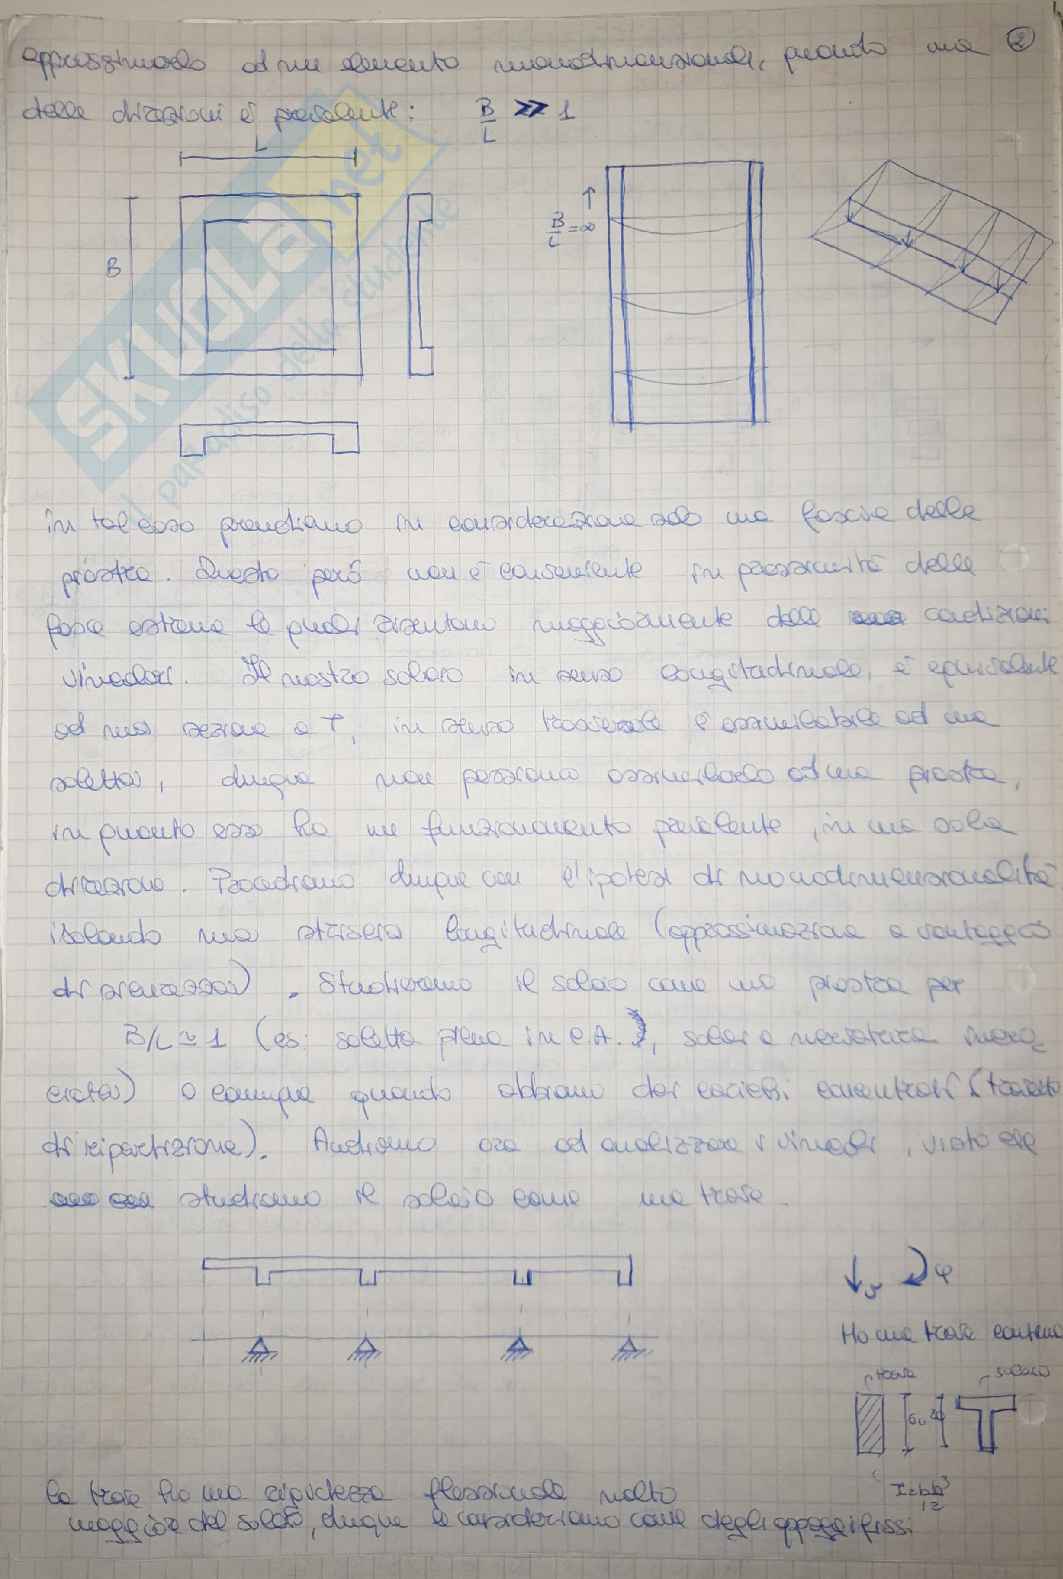 approssimarlo ad un elemento monodimensionale, quando una 2
delle direzioni è prevalente: B/L >> 1
L
B
B/L = ∞
SKUOLA.net
il paradiso dello studente
in tal caso prendiamo in considerazione solo una fascia della
piastra. Questo però non è conveniente in prossimità delle
fasce estreme le quali risentono maggiormente delle condizioni
vincolari. Il nostro solaio in senso longitudinale, è equivalente
ad una sezione a T, in senso trasversale è assimilabile ad una
soletta, dunque non possiamo assimilarlo ad una piastra,
in quanto esso ha un funzionamento prevalente, in una sola
direzione. Procediamo dunque con l'ipotesi di monodimensionalità
isolando una striscia longitudinale (approssimazione a vantaggio
di sicurezza). Studieremo il solaio come una piastra per
B/L ≃ 1 (es: soletta piena in c.A.), solai a nervatura incro-
ciata) o comunque quando abbiamo dei carichi concentrati (travetto
di ripartizione). Andiamo ora ad analizzare i vincoli, visto che
studiamo il solaio come una trave.
v φ
Ho una trave continua
trave solaio
60 24
I = bh³/12
la trave ha una rigidezza flessionale molto
maggiore del solaio, dunque le consideriamo come degli appoggi fissi